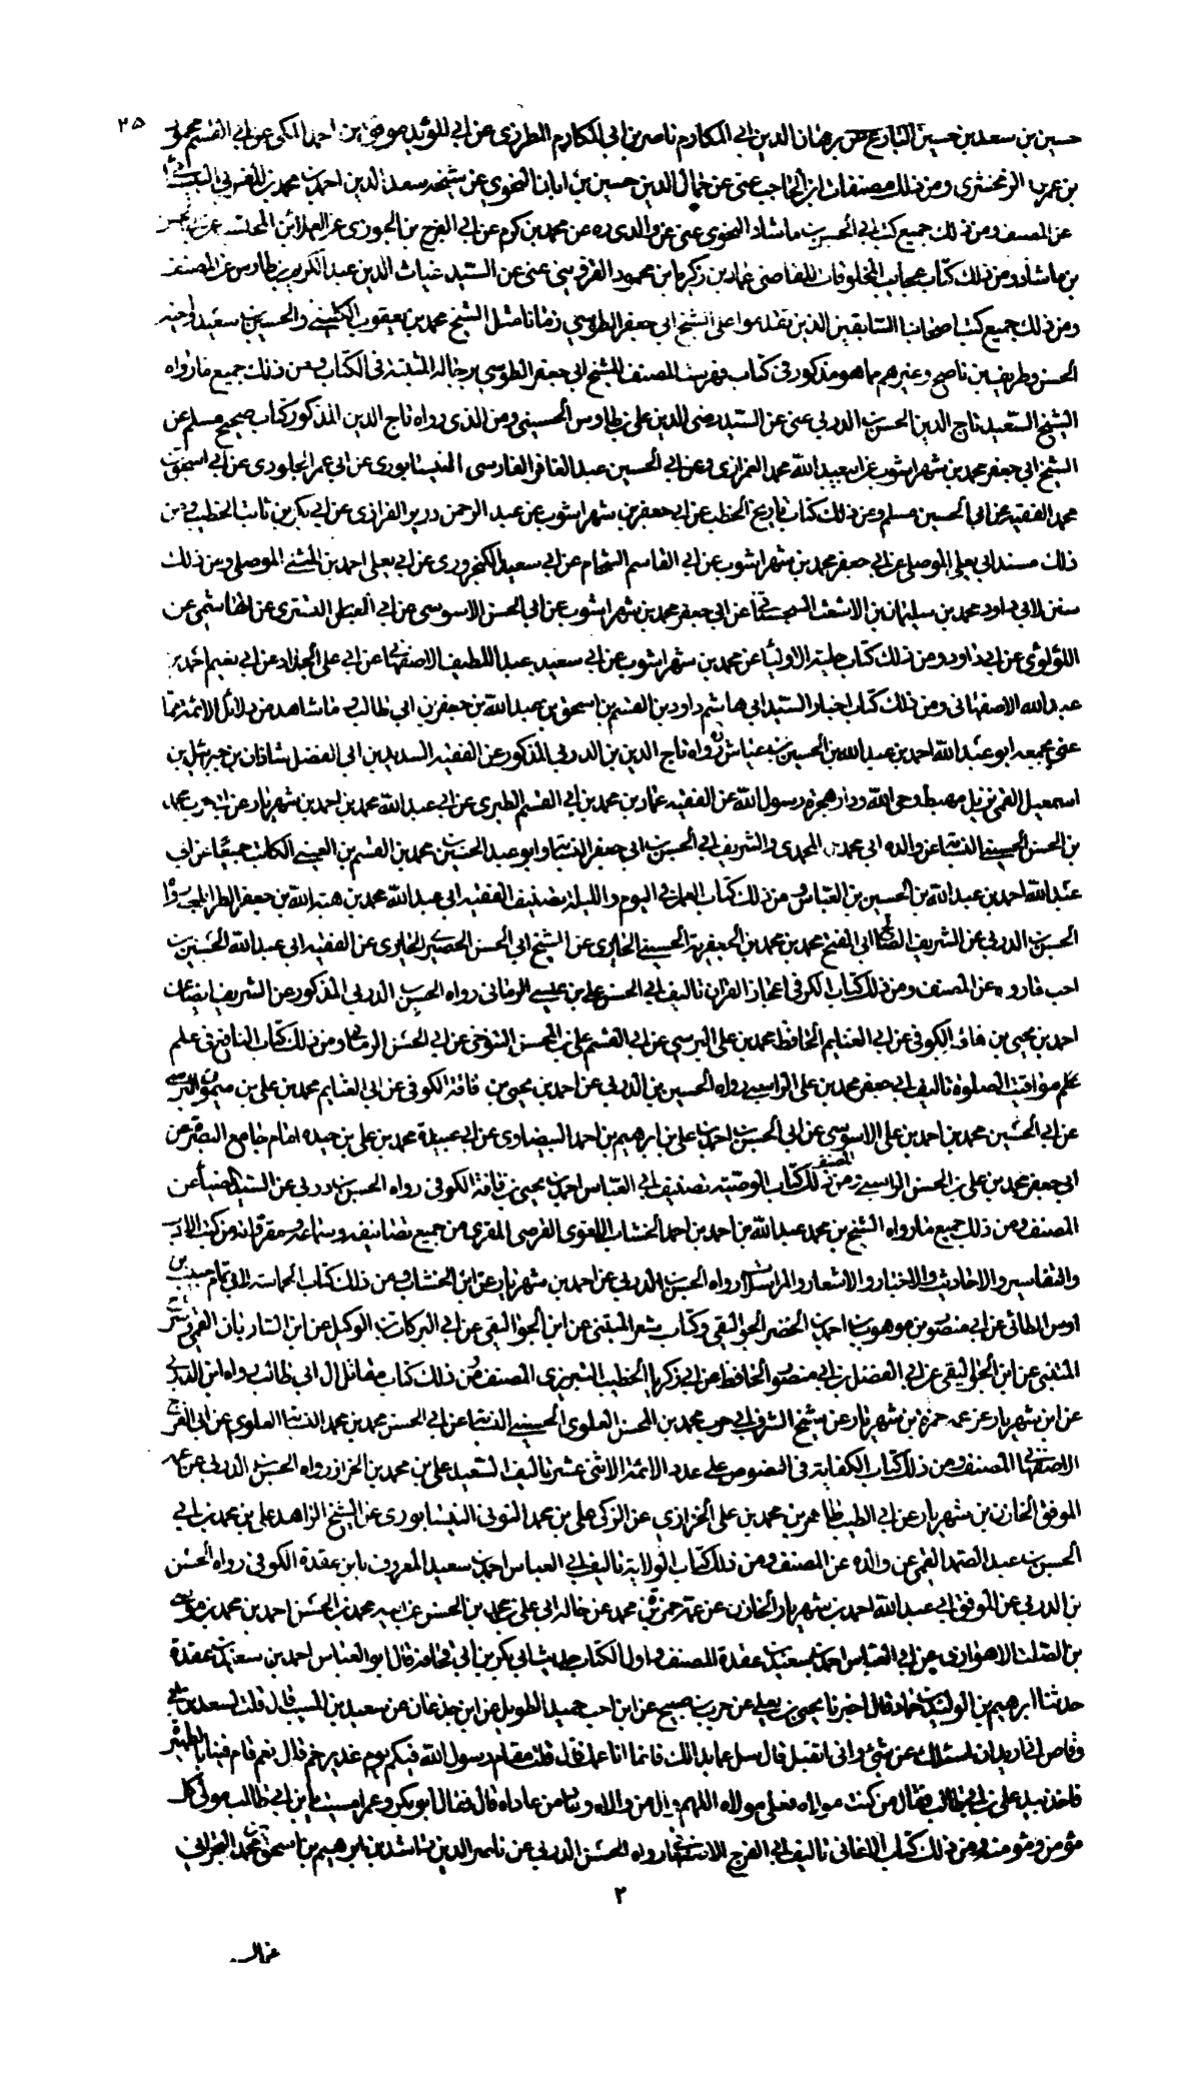 ٢٥
حسين بن سعد بن حسين عن برهان الدين ابي المكارم ناصر بن ابي المكارم المطرزي عن ابي المؤيد موفق بن احمد المكي عن ابي القسم محمود
بن عمر الزمخشري ومن ذلك مصنفات ابن الحاجب عني عن جمال الدين حسين بن ابان النحوي عن شيخه سعد الدين احمد بن محمد
عن المصنف ومن ذلك جميع كتب ابي الحسن بن ماشاد النحوي عني عن والدي ره عن محمد بن كرم عن ابي الفرج بن الجوزي عن
بن ماشاد ومن ذلك كتاب عجايب المخلوقات للقاضي عماد بن زكريا بن محمود القزويني عني عن السيد غياث الدين عبد الكريم بن طاوس عن المصنف
ومن ذلك جميع كتب اصحابنا السابقين الذين تقدموا على الشيخ ابي جعفر الطوسي زمانا مثل الشيخ محمد بن يعقوب الكليني والحسين بن سعيد واخيه
الحسن وظريف بن ناصح وغيرهم ما هو مذكور في كتاب فهرست المصنف للشيخ ابي جعفر الطوسي برجاله المثبتة في الكتاب ومن ذلك جميع ما رواه
الشيخ السعيد تاج الدين الحسن بن الدربي عني عن السيد رضي الدين علي بن طاوس الحسيني ومن الذي رواه تاج الدين المذكور كتاب صحيح مسلم عن
الشيخ ابي جعفر محمد بن شهراشوب عن ابي عبد الله محمد الفراوي عن ابي الحسين عبد الغافر الفارسي النيسابوري عن ابي عمر الجلودي عن ابي اسحق
محمد الفقيه عن ابي الحسين مسلم ومن ذلك كتاب تاريخ الخطيب عن ابي جعفر بن شهراشوب عن عبد الرحمن القزازي عن ابي بكر بن ثابت الخطيب ومن
ذلك مسند ابي يعلى الموصلي عن ابي جعفر محمد بن شهراشوب عن ابي القاسم الشحام عن ابي سعيد الكنجرودي عن ابي يعلى احمد بن المثنى الموصلي ومن ذلك
سنن لابي داود محمد بن سليمان بن الاشعث السجستاني عن ابي جعفر محمد بن شهراشوب عن ابي الحسن الاسوسي عن ابي العباس التستري عن الهاشمي عن
اللؤلؤي عن ابي داود ومن ذلك كتاب حلية الاوليا عن محمد بن شهراشوب عن ابي سعيد عبد اللطيف الاصفهاني عن ابي علي الحداد عن ابي نعيم احمد بن
عبد الله الاصفهاني ومن ذلك كتاب اخبار السيد ابي هاشم داود بن القسم بن اسحق بن عبد الله بن جعفر بن ابي طالب وما شاهد من دلائل الائمة مما
عني بجمعه ابو عبد الله احمد بن عبد الله بن الحسين بن عياش رواه تاج الدين بن الدربي المذكور عن الفقيه السديد بن ابي الفضل شاذان بن جبرئيل بن
اسمعيل القمي نزيل مهبط وحي الله ودار هجرة رسول الله عن الفقيه عماد بن محمد بن ابي القسم الطبري عن ابي عبد الله محمد بن احمد بن شهريار عن محمد
بن الحسن الحسيني النسابة عن والده ابي محمد المحمدي والشريف ابي الحسين بن ابي جعفر النسابة وابو عبد الحسين محمد بن القسم بن العيني الكاتب جميعا عن ابي
عبد الله احمد بن عبد الله بن الحسين بن العباس ومن ذلك كتاب العمل في اليوم والليلة تصنيف الفقيه ابي عبد الله محمد بن هبة الله بن جعفر الطرابلسي رواه
الحسن بن الدربي عن الشريف ابي الفتح محمد بن محمد بن الجعفرية الحسيني الحايري عن الشيخ ابي الحسن الحايري عن الفقيه ابي عبد الله الحسين بن
احب قاروره عن المصنف ومن ذلك كتاب الكرفي اعجاز القران تاليف ابي الحسن علي بن عيسى الرماني رواه الحسن بن الدربي المذكور عن الشريف ايضا عن
احمد بن يحيى بن قافة الكوفي عن ابي الغنايم الحافظ محمد بن علي النرسي عن ابي القسم علي بن المحسن التنوخي عن ابي الحسن الرماني ومن ذلك كتاب النافع في علم
علم مواقيت الصلوة تاليف ابي جعفر محمد بن علي الراسبي رواه الحسين بن الدربي عن احمد بن يحيى بن قافة الكوفي عن ابي الغنايم محمد بن علي بن ميمون النرسي
عن ابي الحسين محمد بن احمد بن علي الاسوسي عن ابي الحسن احمد بن علي بن ابرهيم بن احمد البيضاوي عن ابي عبيدة محمد بن علي بن حيده امام جامع البصرة عن
ابي جعفر محمد بن علي بن الحسن الراسبي المصنف ومن ذلك كتاب الوصية تصنيف ابي العباس احمد بن يحيى بن قافة الكوفي رواه الحسن بن دربي عن السيد عن
المصنف ومن ذلك جميع ما رواه الشيخ بن محمد عبد الله بن احمد بن احمد الخشاب اللغوي القرسي المقري من جميع تصانيفه وسماعه ومقرواته من كتب الادب
والتفاسير والاحاديث والاخبار والاشعار والمراسلات رواه الحسن بن الدربي عن احمد بن شهريار عن ابن الخشاب ومن ذلك كتاب الحماسة لابي تمام حبيب بن
اوس الطائي عن ابي منصور بن موهوب بن احمد بن الخضر الجواليقي وكتاب شعر المتنبي عن ابن الجواليقي عن ابي البركات بن الوكيل عن ابن الساربان القمي عن
المتنبي عن ابن الجواليقي عن ابي الفضل بن ابي منصور الحافظ عن ابي زكريا الخطيب التبريزي المصنف ومن ذلك كتاب مقاتل ال ابي طالب رواه ابن الدربي
عن ابن شهريار عن عمه حمزة بن شهريار عن شيخ الشرف ابي حرب محمد بن المحسن العلوي الحسيني النسابة عن ابي الحسن محمد بن محمد النسابة العلوي عن ابي الفرج
الاصفهاني المصنف ومن ذلك كتاب الكفاية في النصوص على عدد الائمة الاثنى عشر تاليف السعيد علي بن محمد بن الخزاز رواه الحسن بن الدربي عن
الموفق الخازن بن شهريار عن ابي الطيب طاهر بن محمد بن علي الخزازي عن الزكي علي بن محمد التوني النيسابوري عن الشيخ الزاهد علي بن محمد بن ابي
الحسن بن عبد الصمد القمي عن والده عن المصنف ومن ذلك كتاب الولاية تاليف ابي العباس احمد بن سعيد المعروف بابن عقدة الكوفي رواه الحسن
بن الدربي عن الموفق ابي عبد الله احمد بن شهريار الخازن عن عمه حمزة بن محمد عن خاله ابي علي بن محمد بن الحسن عن ابيه محمد بن الحسن عن احمد بن محمد بن موسى
بن الصلت الاهوازي عن ابي العباس احمد بن سعيد بن عقدة المصنف واول الكتاب حديث ابي بكر بن ابي قحافة قال ابو العباس احمد بن سعيد بن عقدة
حدثنا ابرهيم بن الوليد بن حماد قال اخبرنا يحيى بن يعلى عن حرب بن صبيح عن ابن اخت حميد الطويل عن ابن جدعان عن سعيد بن المسيب قال قلت لسعد بن ابي
وقاص اني اريد ان اسئلك عن شئ واني اتقيك قال سل عما بدا لك فانما انا عمك قال قلت مقام رسول الله فيكم يوم غدير خم قال نعم قام فينا بالظهيرة
فاخذ بيد علي بن ابي طالب فقال من كنت مولاه فعلي مولاه اللهم وال من والاه وعاد من عاداه قال فقال ابو بكر وعمر امسيت يا بن ابي طالب مولى كل
مؤمن ومؤمنة ومن ذلك كتاب الاغاني تاليف ابي الفرج الاصفهاني رواه الحسن الدربي عن ناصر الدين راشد بن ابرهيم بن اسحق بن محمد البحراني
٢